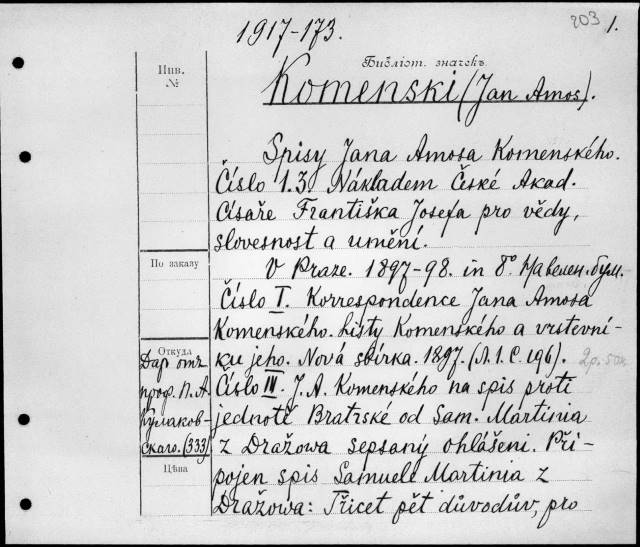 203 1.
1917-173.
Библіот. значекъ
Инв.
№
Komenski (Jan Amos).
Spisy Jana Amosa Komenského.
Číslo 1.3. Nákladem České Akad.
Císaře Františka Josefa pro vědy,
slovesnost a umění.
По заказу
V Praze. 1897-98. in 8° На велен. бум.
Číslo I. Korrespondence Jana Amosa
Komenského. Listy Komenského a vrstevní-
ku jeho. Nová sbírka. 1897. (Л. 1. С. 196).
Откуда
Даръ отъ
проф. П. А.
Кулаков-
скаго. (333)
Číslo III. J. A. Komenského na spis proti
jednotě Bratrské od Sam. Martinia
z Dražowa sepsaný ohlášeni. Při-
pojen spis Samuele Martinia z
Dražowa: Třicet pět důvodův, pro
Цѣна